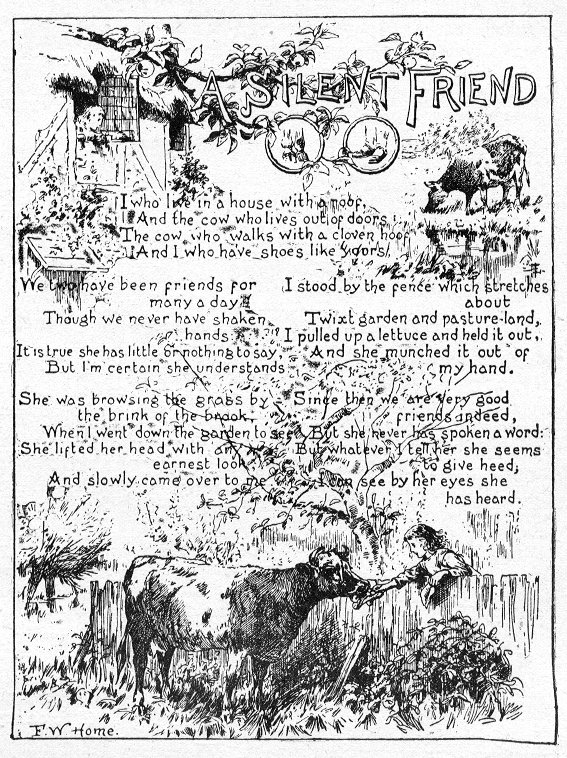 A SILENT FRIEND
I who live in a house with a roof,
And the cow who lives out of doors;
The cow who walks with a cloven hoof,
And I who have shoes like yours,
We two have been friends for
many a day,
Though we never have shaken
hands;
It is true she has little or nothing to say,
But I'm certain she understands
She was browsing the grass by
the brink of the brook,
When I went down the garden to see;
She lifted her head with an
earnest look,
And slowly came over to me.
I stood by the fence which stretches
about
Twixt garden and pasture-land,
I pulled up a lettuce and held it out,
And she munched it out of
my hand.
Since then we are very good
friends indeed,
But she never has spoken a word:
But whatever I tell her she seems
to give heed,
I can see by her eyes she
has heard.
F. W Home.